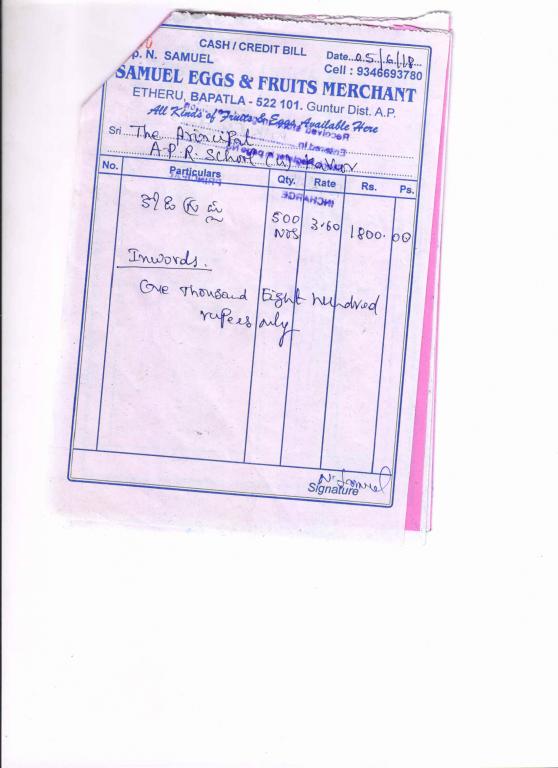 CASH / CREDIT BILL
p. N. SAMUEL
Date 05/6/18
Cell : 9346693780
SAMUEL EGGS & FRUITS MERCHANT
ETHERU, BAPATLA - 522 101. Guntur Dist. A.P.
All Kinds of Fruits & Eggs Available Here
Sri The Principal
A.P.R. School (G)
No. Particulars Qty. Rate Rs. Ps.
500 NOS 3.60 1800.00
Inwords.
One Thousand Eight hundred
rupees only
N. Samuel
Signature